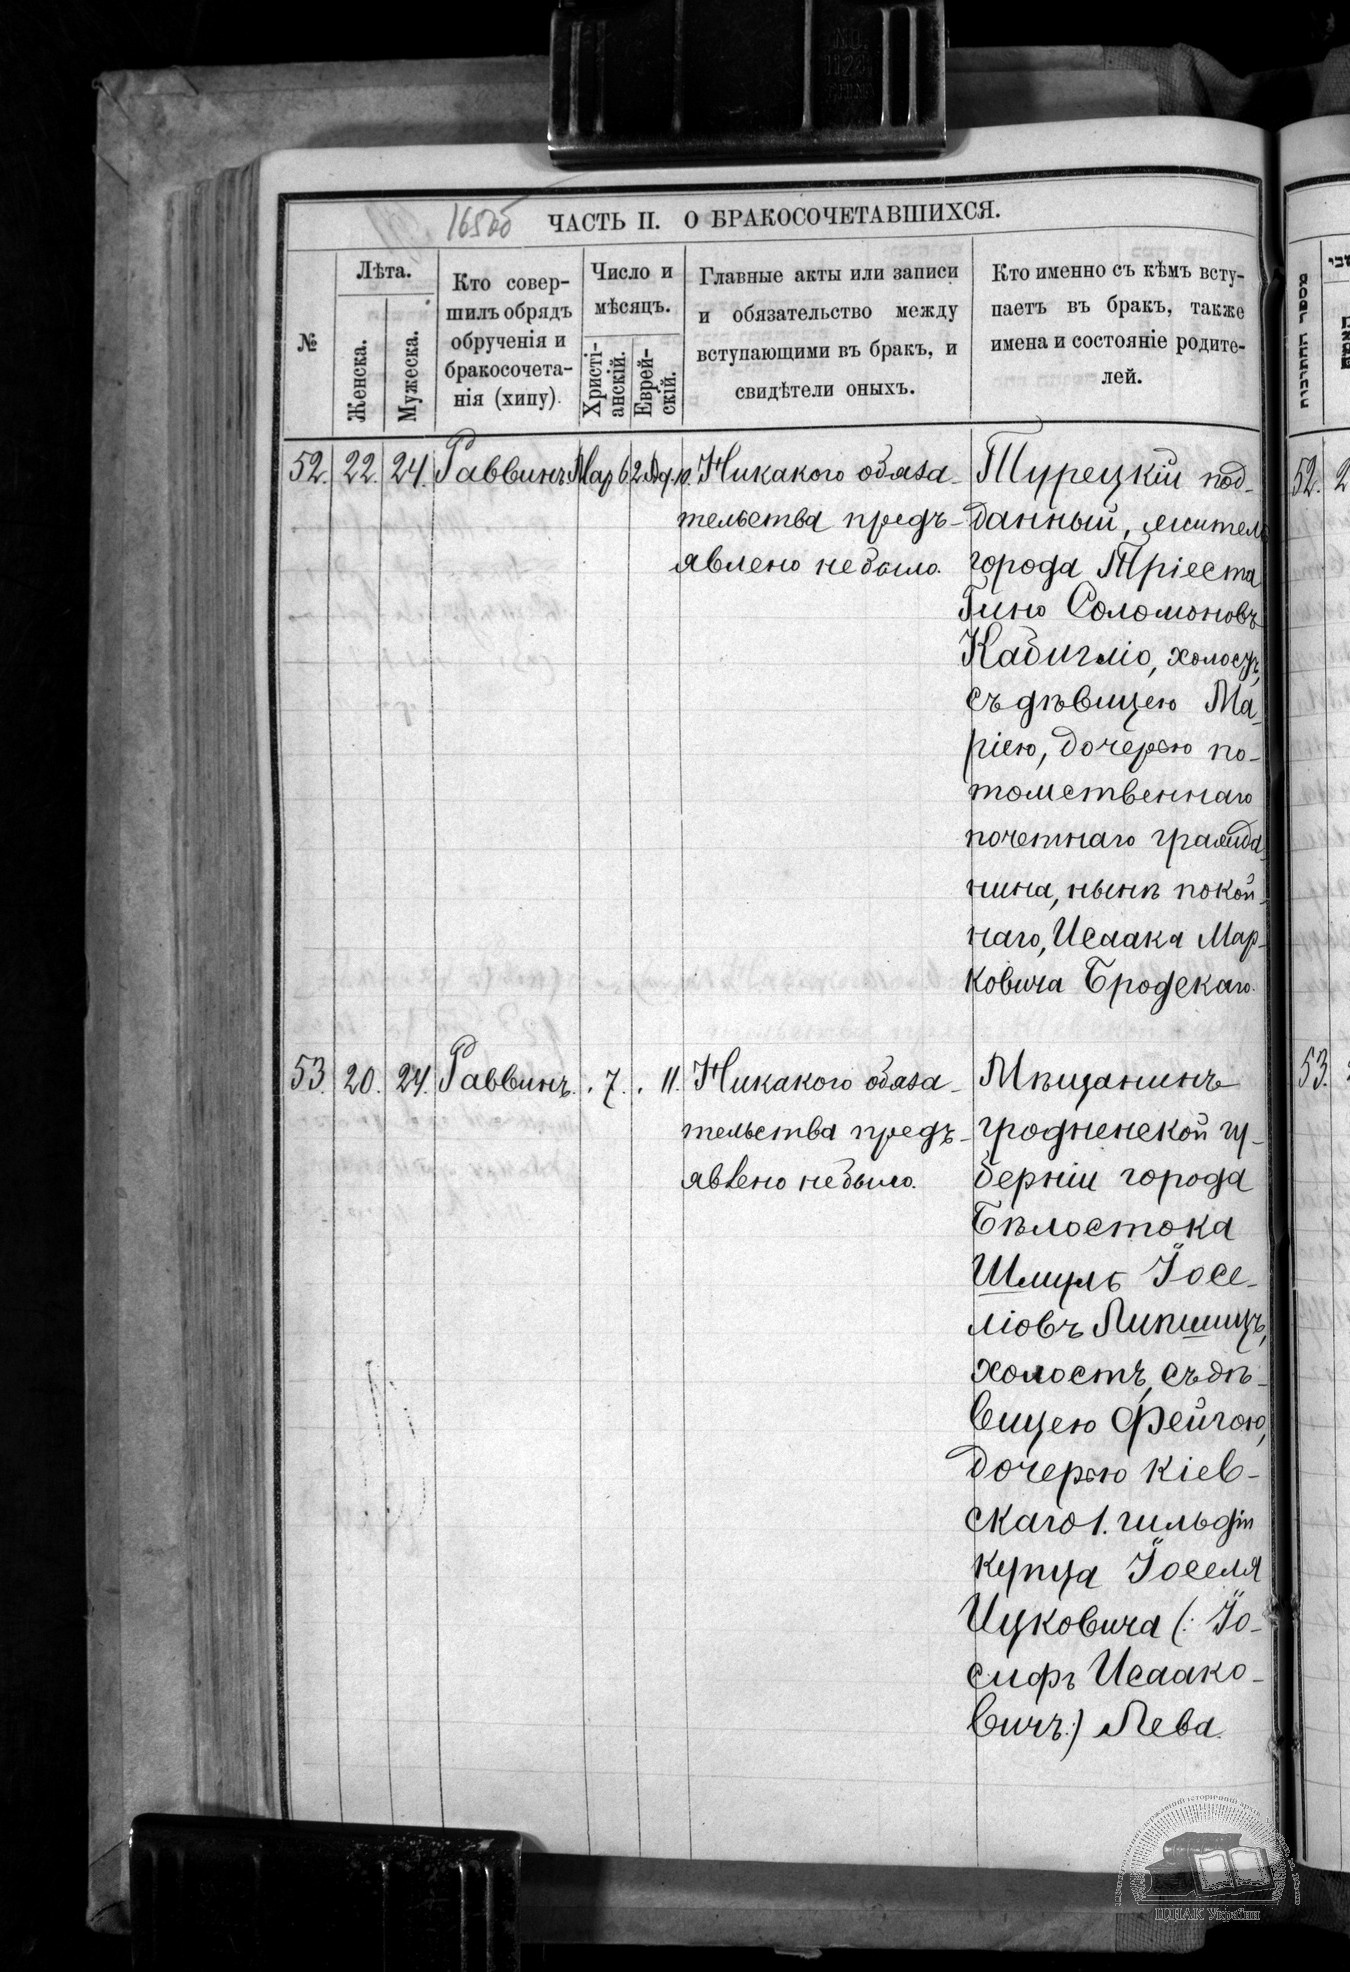 165об
ЧАСТЬ II. О БРАКОСОЧЕТАВШИХСЯ.
№
Лѣта.
Женска.
Мужеска.
Кто совер-
шилъ обрядъ
обрученія и
бракосочета-
нія (хипу).
Число и
мѣсяцъ.
Христі-
анскій.
Еврей-
скій.
Главные акты или записи
и обязательство между
вступающими въ бракъ, и
свидѣтели оныхъ.
Кто именно съ кѣмъ всту-
паетъ въ бракъ, также
имена и состояніе родите-
лей.
52. 22. 24. Раввинъ Мар 6 2 Ад. 10. Никакого обяза-
тельства предъ-
явлено не было.
Турецкій под-
данный, житель
города Тріеста
Гино Соломоновъ
Кабигліо, холостъ,
съ дѣвицею Ма-
ріею, дочерью по-
томственнаго
почетнаго гражда-
нина, нынѣ покой-
наго, Исаака Мар-
ковича Бродскаго.
53. 20. 24. Раввинъ. . 7. . 11. Никакого обяза-
тельства предъ-
явлено не было.
Мѣщанинъ
гродненской гу-
берніи города
Бѣлостока
Шмуль Іосе-
ліовъ Липшицъ,
холостъ, съ дѣ-
вицею Фейгою,
дочерью кіев-
скаго 1. гильдіи
купца Іоселя
Ицковича (: Іо-
сифъ Исаако-
вичъ:) Лева.
52. 2
53.
ЦДІАК України